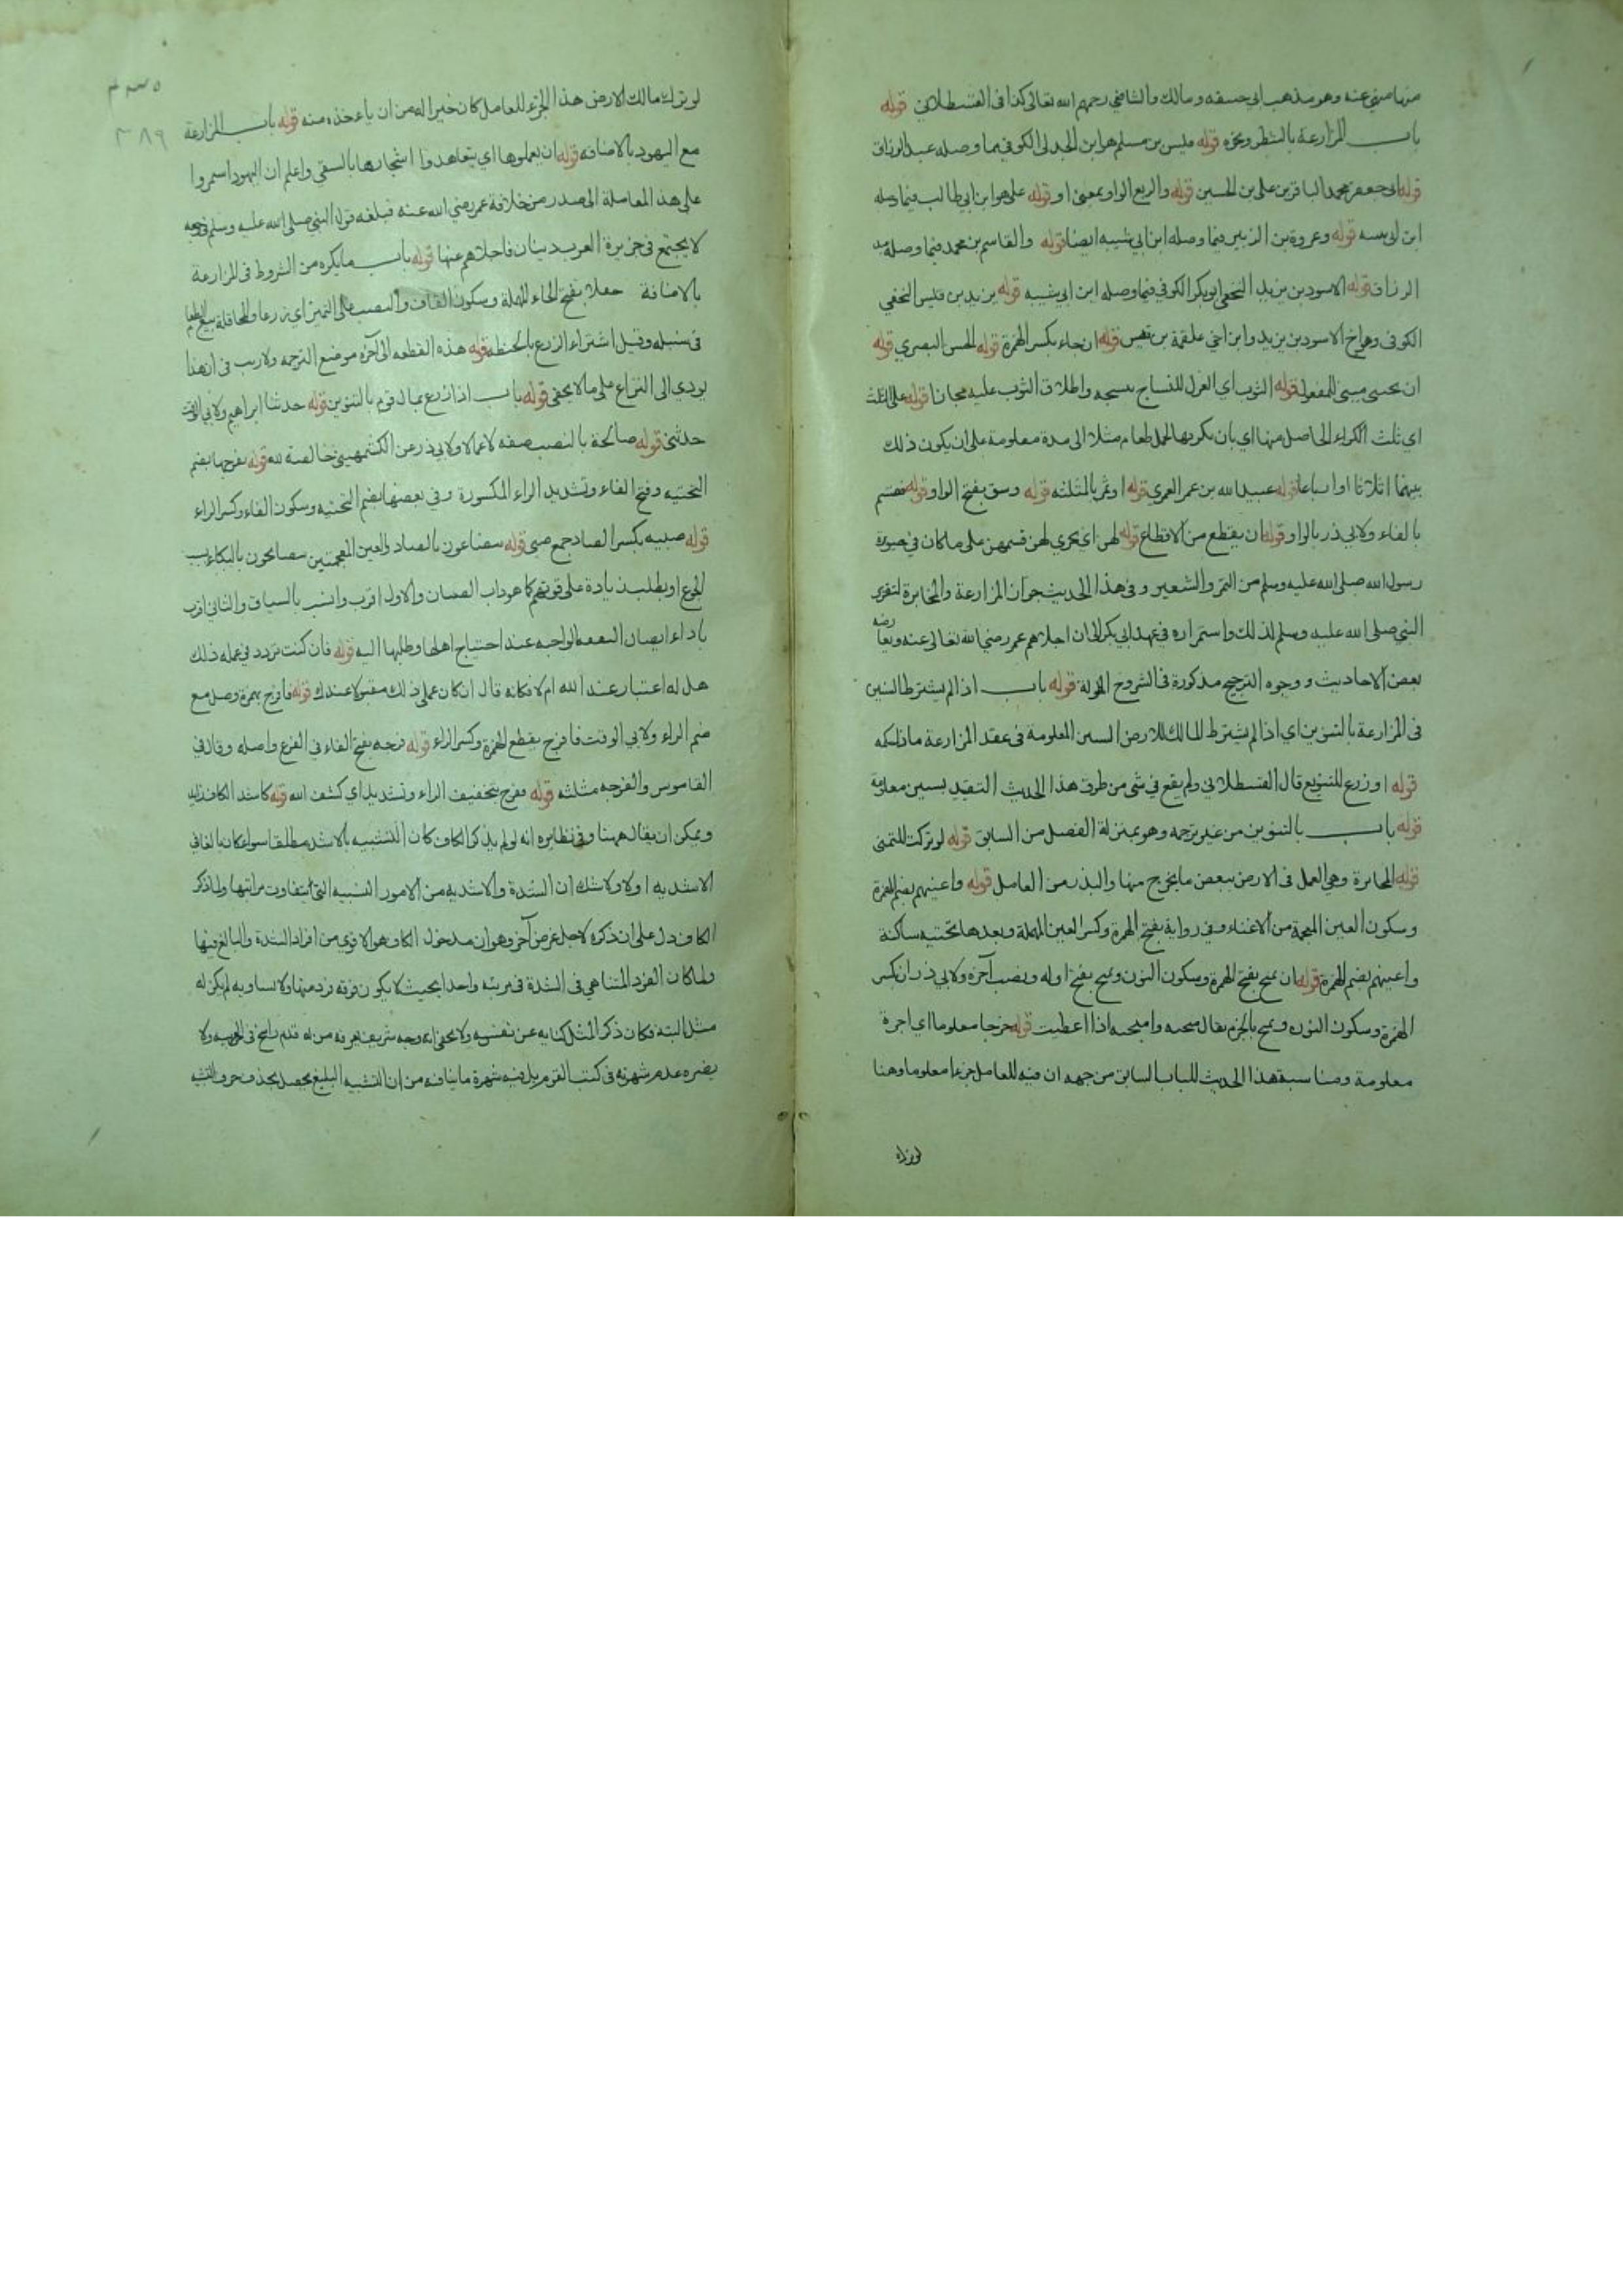 منها منهي عنه وهو مذهب ابي حنيفة ومالك والشافعي رحمهم الله تعالى كذا في القسطلاني قوله
باب المزارعة بالشطر ونحوه قوله قيس بن مسلم هو ابن الجدلي الكوفي فيما وصله عبد الرزاق
قوله ابي جعفر محمد الباقر بن علي بن الحسين قوله والربع الواو بمعنى او قوله علي هو ابن ابي طالب فيما وصله
ابن ابي شيبه قوله وعروة بن الزبير فيما وصله ابن ابي شيبه ايضا قوله والقاسم بن محمد فيما وصله عبد
الرزاق قوله الاسود بن يزيد النخعي ابو بكر الكوفي فيما وصله ابن ابي شيبه قوله يزيد بن قيس النخعي
الكوفي وهو اخ الاسود بن يزيد وابن اخي علقمة بن قيس قوله ان جاء بكسر الهمزة قوله الحسن البصري قوله
ان يجتنى مبني للمفعول قوله الثوب اي الغزل للنساج ينسجه واطلاق الثوب عليه مجازا قوله على الثلث
اي ثلث الكراء الحاصل منها اي بان يكريها لحمل طعام مثلا الى مدة معلومة على ان يكون ذلك
بينهما اثلاثا او ارباعا قوله عبيد الله بن عمر العمري قوله او ثمر بالمثلثه قوله وسق بفتح الواو قوله فقسم
بالفاء ولابي ذر بالواو قوله ان يقطع من الاقطاع قوله لهن اي يجري لهن قسمهن على ما كان في حيوة
رسول الله صلى الله عليه وسلم من التمر والشعير وفي هذا الحديث جواز المزارعة والمخابرة لتقرير
النبي صلى الله عليه وسلم لذلك واستمراره في عهد ابي بكر رضه الى ان اجلاهم عمر رضي الله تعالى عنه
بعض الاحاديث ووجوه الترجيح مذكورة في الشروح قوله باب اذا لم يشترط السنين
في المزارعة بالتنوين اي اذا لم يشترط المالك للارض السنين المعلومة في عقد المزارعة
قوله او زرع للتنويع قال القسطلاني ولم يقع في شي من طرق هذا الحديث التقيد بسنين معلومة
قوله باب بالتنوين من غير ترجمه وهو بمنزلة الفصل من السابق قوله لو تركت للتمني
قوله المخابرة وهي العمل في الارض ببعض ما يخرج منها والبذر من العامل قوله واغنيهم بضم الهمزة
وسكون الغين المعجمة من الاغناء وفي رواية بفتح الهمزة وكسر العين المهملة وبعدها تحتيه ساكنة
واعينهم بضم الهمزة قوله ان يمنح بفتح الهمزة وسكون النون ويمنح بفتح اوله ونصب آخره ولابي ذر ان بكسر
الهمزة وسكون النون ويمنح بالجزم يقال منحه وامنحه اذا اعطيت قوله خرجا معلوما اي اجرة
معلومة ومناسبة هذا الحديث للباب السابق من جهه ان فيه للعامل جزءا معلوما وهنا
لو ترك
٣٨٩
لو ترك مالك الارض هذا الجزء للعامل كان خيرا له من ان يأخذه منه قوله باب المزارعة
مع اليهود بالاضافه قوله ان يعملوها اي يتعاهدوا اشجارها بالسقي واعلم ان اليهود استمروا
على هذ المعاملة الى صدر من خلافة عمر رضي الله عنه فبلغه قول النبي صلى الله عليه وسلم في وجعه
لا يجتمع في جزيرة العرب دينان فاجلاهم عنها قوله باب ما يكره من الشروط في المزارعة
بالاضافة حقلا بفتح الحاء المهملة وسكون القاف والنصب على التميز اي زرعا والمحاقلة بيع الطعام
في سنبله وقيل اشتراء الزرع بالحنطه قوله هذه القطعه الى آخره موضع الترجمه ولا ريب في ان هذا
يودي الى النزاع على ما لا يخفى قوله باب اذا زرع بمال قوم بالتنوين قوله حدثنا ابراهيم ولابي الوقت
حدثني قوله صالحة بالنصب صفه لاعمالا ولابي ذر عن الكشميهني خالصة لله قوله يفرجها بضم
التحتيه وفتح الفاء وتشديد الراء المكسورة وفي بعضها بضم التحتيه وسكون الفاء وكسر الراء
قوله صبيه بكسر الصاد جمع صبي قوله يتضاغون بالضاد والغين المعجمتين يتصايحون بالبكاء بسبب
الجوع او بطلب زيادة على قوتهم كما هو داب الصبيان والاول اقرب وانسب بالسياق والثاني اقرب
باداء ايصال النفقه الواجبه عند احتياج اهلها وطلبها اليه قوله فان كنت تردد في عمله ذلك
هل له اعتبار عند الله ام لا فكانه قال ان كان عملي ذلك مقبولا عندك قوله فافرج بهمزة وصل مع
ضم الراء ولابي الوقت فافرج بقطع الهمزة وكسر الراء قوله فرجه بفتح الفاء في الفرع واصله وقال في
القاموس والفرجه مثلثه قوله ففرج بتخفيف الراء وتشديد اي كشف الله قوله كاشد الكاف زايد
ويمكن ان يقال ههنا وفي نظايره انه لو لم يذكر الكاف كان التشبيه بالاشد مطلقا سواء كان بالغا في
الاشديه او لا ولا شك ان الشدة والاشديه من الامور النسبيه التي يتفاوت مراتبها ولما ذكر
الكاف دل على ان ذكره لاجل غرض آخر وهو ان مدخول الكاف هو الاقوى من افراد الشدة والبالغ فيها
ولما كان الفرد المتناهي في الشدة في مرتبه واحدا بحيث لا يكون فوقه فرد منها ولا يساويه لم يكن له
مثل البته فكان ذكر المثل كنايه عن نفسه ولا يخفى انه وجه شريف يعرفه من له قدم راسخ في العربيه ولا
يضره عدم شهرته في كتب القوم بل فيه شهرة ما ينافيه من ان التشبيه البليغ يحصل بحذف حرف التشبيه